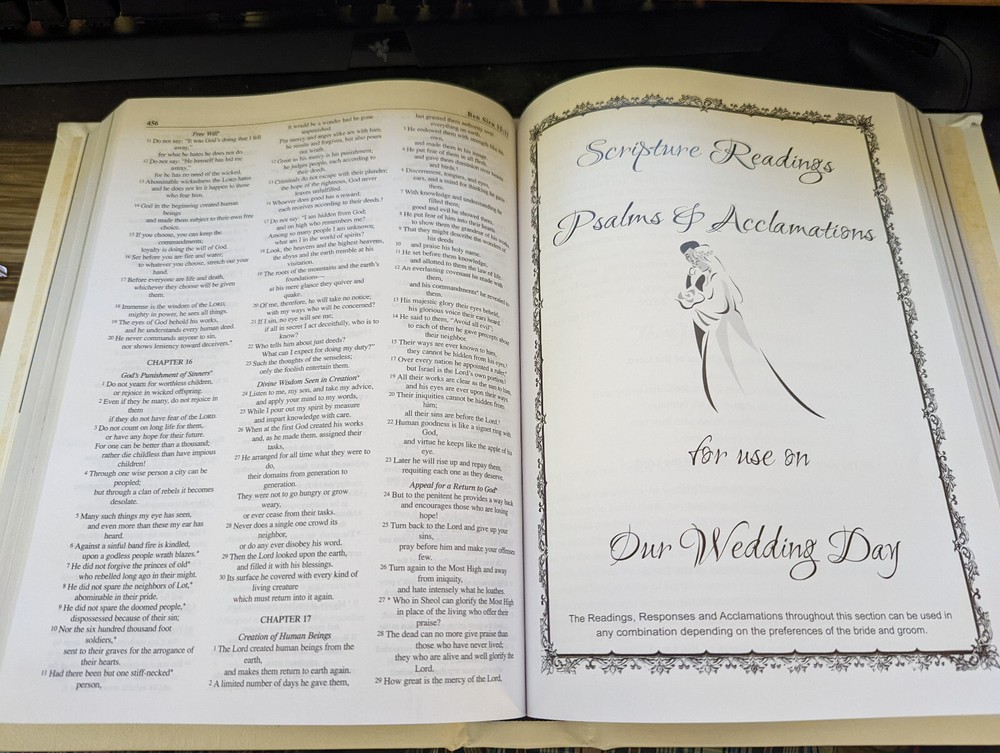 456
Ben Sira 15:11
Free Will*
11 Do not say: "It was God's doing that I fell
away,"
for what he hates he does not do.
12 Do not say: "He himself has led me
astray,"
for he has no need of the wicked.
13 Abominable wickedness the LORD hates
and he does not let it happen to those
who fear him.
14 God in the beginning created human
beings
and made them subject to their own free
choice.
15 If you choose, you can keep the
commandments;
loyalty is doing the will of God.
16 Set before you are fire and water;
to whatever you choose, stretch out your
hand.
17 Before everyone are life and death,
whichever they choose will be given
them.
18 Immense is the wisdom of the LORD;
mighty in power, he sees all things.
19 The eyes of God behold his works,
and he understands every human deed.
20 He never commands anyone to sin,
nor shows leniency toward deceivers.*
CHAPTER 16
God's Punishment of Sinners*
1 Do not yearn for worthless children,
or rejoice in wicked offspring.
2 Even if they be many, do not rejoice in
them
if they do not have fear of the LORD.
3 Do not count on long life for them,
or have any hope for their future.
For one can be better than a thousand;
rather die childless than have impious
children!
4 Through one wise person a city can be
peopled;
but through a clan of rebels it becomes
desolate.
5 Many such things my eye has seen,
and even more than these my ear has
heard.
6 Against a sinful band fire is kindled,
upon a godless people wrath blazes.*
7 He did not forgive the princes of old*
who rebelled long ago in their might.
8 He did not spare the neighbors of Lot,*
abominable in their pride.
9 He did not spare the doomed people,*
dispossessed because of their sin;
10 Nor the six hundred thousand foot
soldiers,*
sent to their graves for the arrogance of
their hearts.
11 Had there been but one stiff-necked*
person,
it would be a wonder had he gone
unpunished.
For mercy and anger alike are with him;
he remits and forgives, but also pours
out wrath.
12 Great as his mercy is his punishment;
he judges people, each according to
their deeds.
13 Criminals do not escape with their plunder;
the hope of the righteous, God never
leaves unfulfilled.
14 Whoever does good has a reward;
each receives according to their deeds.†
17 Do not say: "I am hidden from God;
and on high who remembers me?
Among so many people I am unknown;
what am I in the world of spirits?
18 Look, the heavens and the highest heavens,
the abyss and the earth tremble at his
visitation.
19 The roots of the mountains and the earth's
foundations—
at his mere glance they quiver and
quake.
20 Of me, therefore, he will take no notice;
with my ways who will be concerned?
21 If I sin, no eye will see me;
if all in secret I act deceitfully, who is to
know?
22 Who tells him about just deeds?
What can I expect for doing my duty?"
23 Such the thoughts of the senseless;
only the foolish entertain them.
Divine Wisdom Seen in Creation*
24 Listen to me, my son, and take my advice,
and apply your mind to my words,
25 While I pour out my spirit by measure
and impart knowledge with care.
26 When at the first God created his works
and, as he made them, assigned their
tasks,
27 He arranged for all time what they were to
do,
their domains from generation to
generation.
They were not to go hungry or grow
weary,
or ever cease from their tasks.
28 Never does a single one crowd its
neighbor,
or do any ever disobey his word.
29 Then the Lord looked upon the earth,
and filled it with his blessings.
30 Its surface he covered with every kind of
living creature
which must return into it again.
CHAPTER 17
Creation of Human Beings
1 The Lord created human beings from the
earth,
and makes them return to earth again.
2 A limited number of days he gave them,
but granted them authority over
everything on earth.
3 He endowed them with strength like his
own,
and made them in his image.
4 He put fear of them in all flesh,
and gave them dominion over beasts
and birds.†
6 Discernment, tongues, and eyes,
ears, and a mind for thinking he gave
them.
7 With knowledge and understanding he
filled them;
good and evil he showed them.
8 He put fear of him into their hearts
to show them the grandeur of his works,
9 That they might describe the wonders of
his deeds
10 and praise his holy name.
11 He set before them knowledge,
and allotted to them the law of life.
12 An everlasting covenant he made with
them,
and his commandments* he revealed to
them.
13 His majestic glory their eyes beheld,
his glorious voice their ears heard.
14 He said to them, "Avoid all evil";
to each of them he gave precepts about
their neighbor.
15 Their ways are ever known to him,
they cannot be hidden from his eyes.†
17 Over every nation he appointed a ruler,*
but Israel is the Lord's own portion.†
19 All their works are clear as the sun to him,
and his eyes are ever upon their ways.
20 Their iniquities cannot be hidden from
him;
all their sins are before the Lord.†
22 Human goodness is like a signet ring with
God,
and virtue he keeps like the apple of his
eye.
23 Later he will rise up and repay them,
requiting each one as they deserve.
Appeal for a Return to God*
24 But to the penitent he provides a way back
and encourages those who are losing
hope!
25 Turn back to the Lord and give up your
sins,
pray before him and make your offenses
few.
26 Turn again to the Most High and away
from iniquity,
and hate intensely what he loathes.
27 * Who in Sheol can glorify the Most High
in place of the living who offer their
praise?
28 The dead can no more give praise than
those who have never lived;
they who are alive and well glorify the
Lord.
29 How great is the mercy of the Lord,
Scripture Readings
Psalms & Acclamations
for use on
Our Wedding Day
The Readings, Responses and Acclamations throughout this section can be used in
any combination depending on the preferences of the bride and groom.